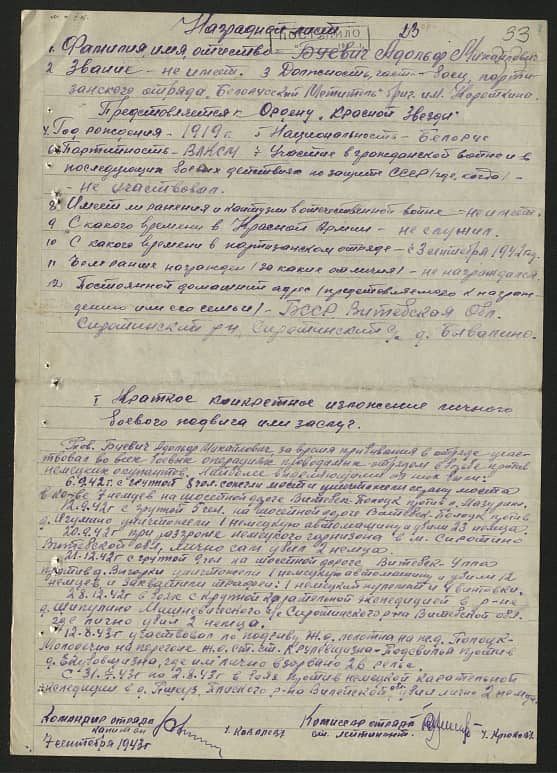 Наградной лист 23 33
1. Фамилия, имя, отчество - Буевич Адольф Михайлович
2 Звание - не имеет. 3 Должность, часть - боец, парти-
занского отряда. Белорусский Мститель бриг. им. Короткина.
Представляется к Ордену "Красной Звезды"
4. Год рождения - 1919 г. 5 Национальность - Белорус
6 Партийность - ВЛКСМ 7 Участие в гражданской войне и в
последующих боевых действиях по защите СССР (где, когда) -
- не участвовал.
8 Имеет ли ранения и контузии в отечественной войне - не имеет.
9 С какого времени в Красной Армии - не служил.
10 С какого времени в партизанском отряде - с 3 сентября 1942 год.
11 Чем ранее награжден (за какие отличия) - не награждался.
12 Постоянной домашний адрес (представляемого к награж-
дению или его семьи) - БССР Витебская Обл.
Сиротинский р-н, Сиротинский с/с д.
I Краткое конкретное изложение личного
боевого подвига или заслуг.
Тов. Буевич Адольф Михайлович, за время пребывания в отряде участ-
вовал во всех боевых операциях проводимых отрядом в борьбе против
немецких оккупантов. Наиболее выделяющиеся из них были:
6.9.42г. с группой сожгли мост и уничтожили охрану моста
в кол-ве 7 немцев на шоссейной дороге Витебск-Полоцк против д.
12.9.42 г с группой 5 чел. на шоссейной дороге Витебск-Полоцк против
д. уничтожили 1 немецкую автомашину и убили 23 немца.
20.9.42г при разгроме немецкого гарнизона в м. Сиротино
Витебской обл, лично сам убил 2 немца.
21.12.42г с группой на шоссейной дороге Витебск-Улла
против д. 1 немецкую автомашину и убили 12
немцев и захватили трофеи: 1 немецкий пулемет и 4 винтовки.
28.12.42г в бою с крупной карательной экспедицией в р-не
д. Шипулино с/с Сиротинского р-на Витебской обл.
где лично убил 2 немца.
12-8-43г участвовал по подрыву ж.д. полотна на ж.д. Полоцк-
Молодечно на перегоне ж.д. ст. ст. Крулевщизна - Подсвилье против
д. где им лично взорвано 26 рельс.
С 31.7.43г по 2.8.43г в боях против немецкой карательной
экспедиции в д. р-на Вилейской обл. убил лично 2 немца.
Командир отряда
капитан /Ковалев/
7 сентября 1943 г
Комиссар отряда
ст. лейтенант